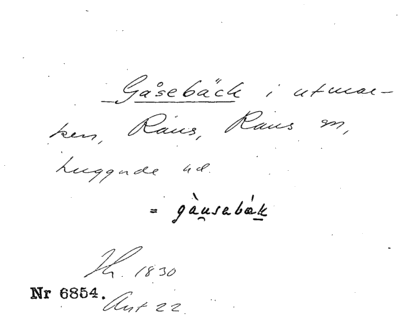 Gåsebäck i utmar-
ken, Raus, Raus sn,
Luggude hd.
= gàusabák
Ht. 1830
Nr 6854. Ant 22